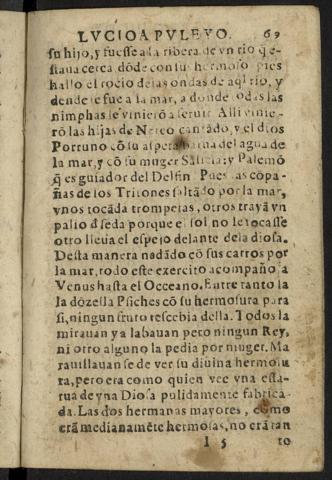 LVCIO APVLEYO. 69
su hijo, y fuesse a la ribera de vn rio q̃ e-
staua cerca dõde con sus hermoso pies
hallo el rocio de las ondas de aq̃l rio, y
dende se fue a la mar, a donde todas las
nimphas le vinierõ a seruir. Alli vinie-
rõ las hijas de Nereo cantãdo, y el dios
Portuno cõ su aspera barua del agua de
la mar, y cõ su muger Salicia: y Palemõ
q̃ es guiador del Delfin. Pues las cop a-
ñas de los Tritones saltãdo por la mar,
vnos tocãda trompetas, otros trayã vn
palio d̃ seda porque el sol no le tocasse
otro lleuia el espejo delante dela diosa.
Desta manera nadãdo cõ sus carros por
la mar, todo este exercito acompaño a
Venus hasta el Occeano. Entre tanto la
la dõzella Psiches cõ su hermosura para
si, ningun fruto rescebia della. Todos la
mirauan y alabauan pero ningun Rey,
ni otro alguno la pedia por muger. Ma
rauillauanse de ver su diuina hermosu
ra, pero era como quien vee vna esta-
tua de vna Diosa pulidamente fabrica-
da. Las dos hermanas mayores, como
erã medianamẽte hermosas, no erã tan
I 5 to